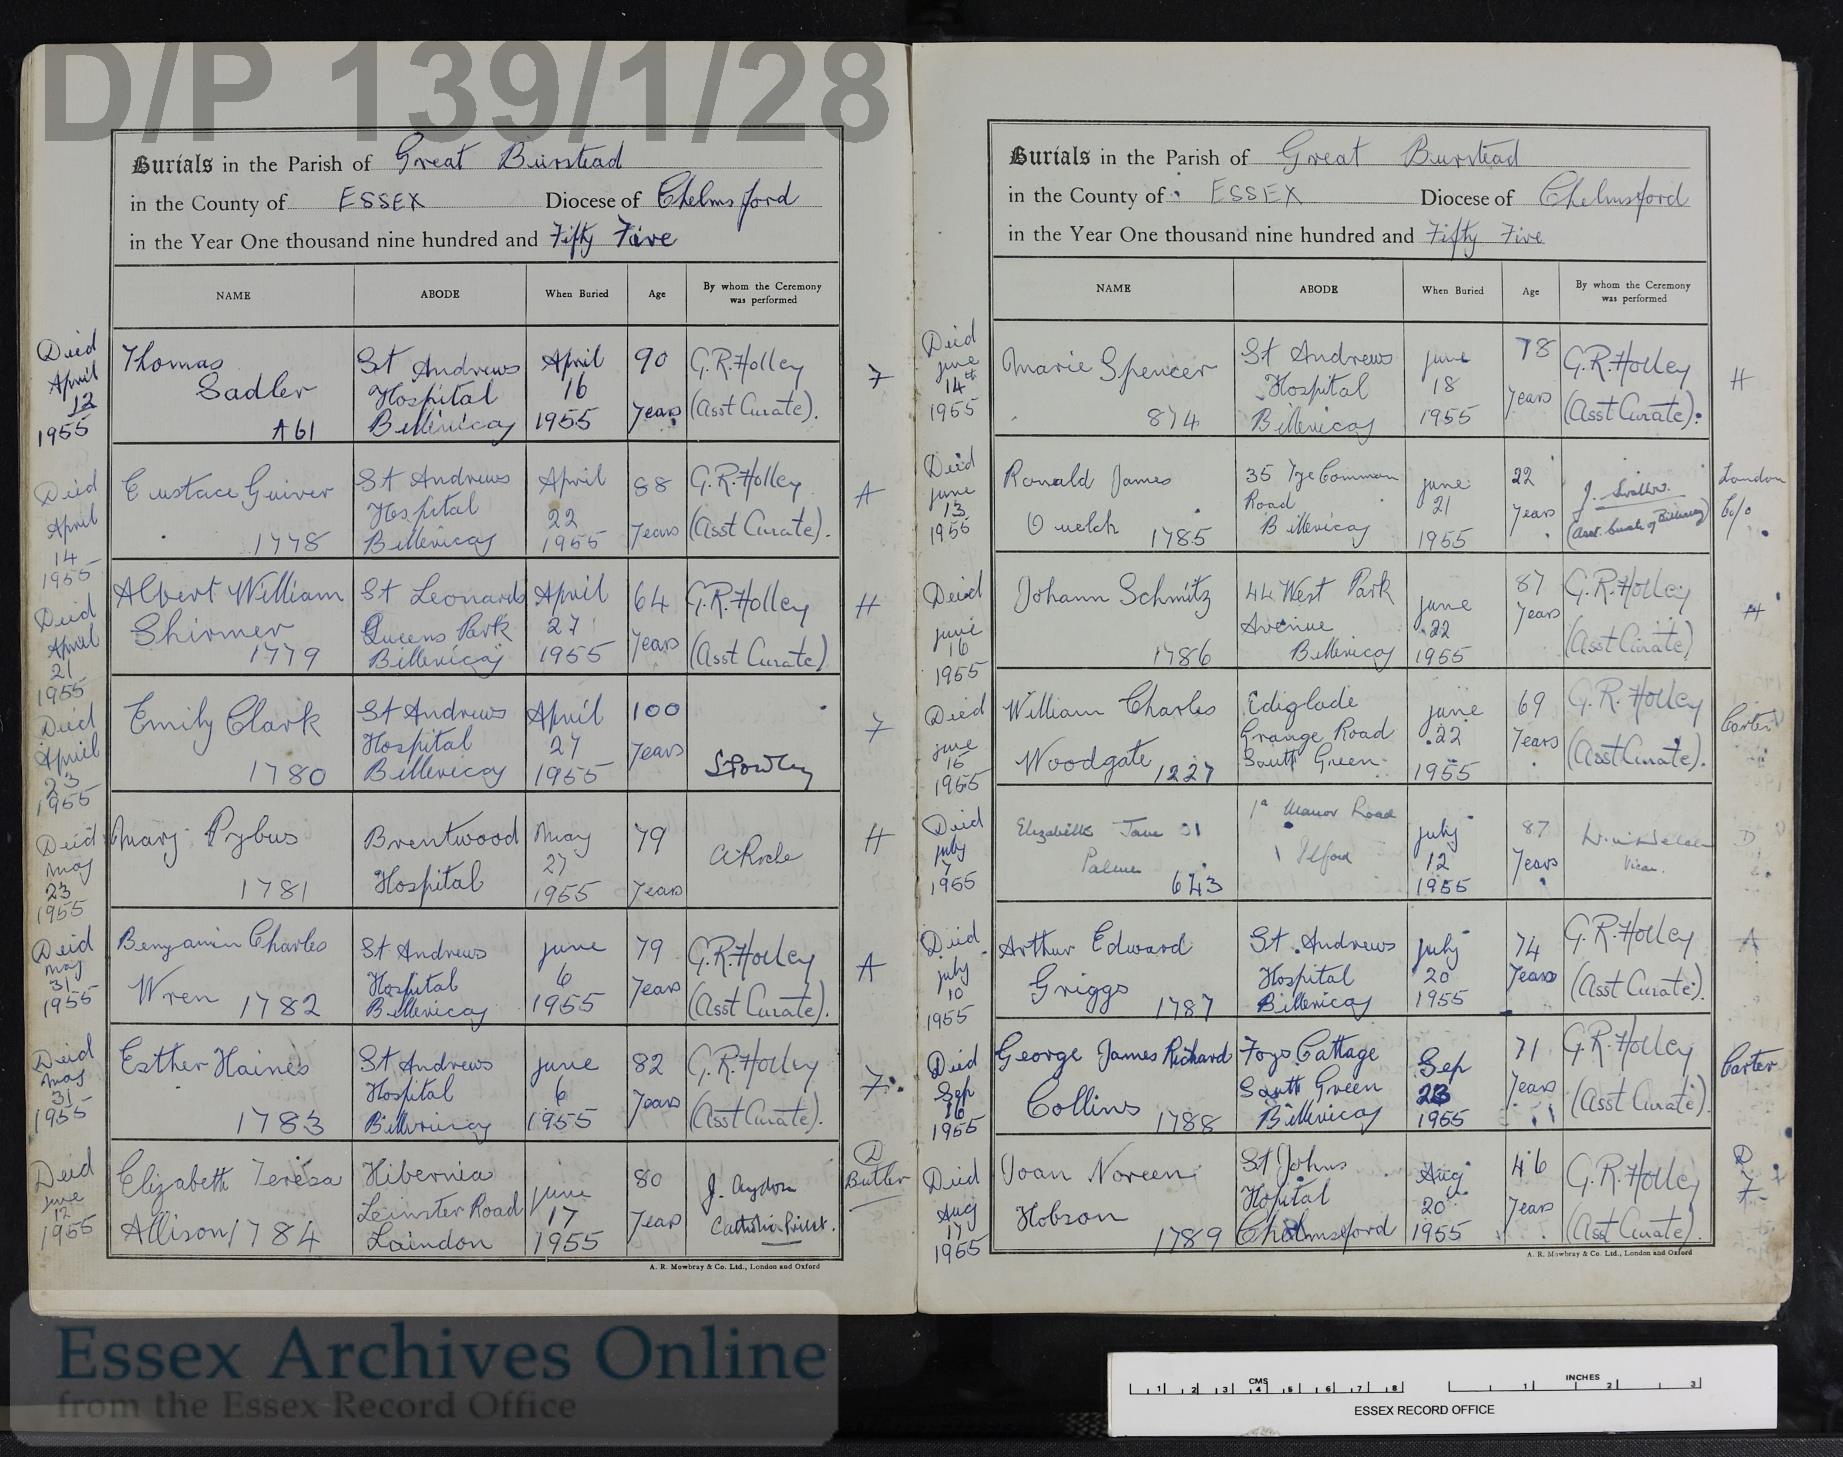 D/P 139/1/28
Burials in the Parish of Great Burstead
in the County of ESSEX Diocese of Chelmsford
in the Year One thousand nine hundred and Fifty Five
NAME ABODE When Buried Age By whom the Ceremony was performed
Died April 12 1955
Thomas Sadler A61
St Andrews Hospital Billericay
April 16 1955
90 Years
G.R. Holley (Asst Curate).
7
Died April 14 1955
Eustace Guiver 1778
St Andrews Hospital Billericay
April 22 1955
88 Years
G.R. Holley (Asst Curate).
A
Died April 21 1955
Albert William Shirmer 1779
St Leonards Queens Park Billericay
April 27 1955
64 Years
G.R. Holley (Asst Curate)
H
Died April 23 1955
Emily Clark 1780
St Andrews Hospital Billericay
April 27 1955
100 Years
7
Died May 23 1955
Mary Pybus 1781
Brentwood Hospital
May 27 1955
79 Years
H
Died May 31 1955
Benjamin Charles Wren 1782
St Andrews Hospital Billericay
June 6 1955
79 Years
G.R. Holley (Asst Curate).
A
Died May 31 1955
Esther Haines 1783
St Andrews Hospital Billericay
June 6 1955
82 Years
G.R. Holley (Asst Curate).
7.
Died June 12 1955
Elizabeth Teresa Allison 1784
Hibernia Leinster Road Laindon
June 17 1955
80 Years
Catholic Priest.
D Butler
A. R. Mowbray & Co. Ltd., London and Oxford
Burials in the Parish of Great Burstead
in the County of ESSEX Diocese of Chelmsford
in the Year One thousand nine hundred and Fifty Five
NAME ABODE When Buried Age By whom the Ceremony was performed
Died June 14th 1955
Marie Spencer 874
St Andrews Hospital Billericay
June 18 1955
78 Years
G.R. Holley (Asst Curate).
H
Died June 13 1955
Ronald James Quelch 1785
35 Tye Common Road Billericay
June 21 1955
22 Years
(Asst. Curate of Billericay)
London Co/o
Died June 16 1955
Johann Schmitz 1786
44 West Park Avenue Billericay
June 22 1955
87 Years
G.R. Holley (Asst Curate)
H
Died June 16 1955
William Charles Woodgate 1227
Ediglade Grange Road South Green
June 22 1955
69 Years
G.R. Holley (Asst Curate).
Carter
Died July 7 1955
Elizabeth Jane Palmer 643
1a Manor Road Ilford
July 12 1955
87 Years
Vicar.
D
Died July 10 1955
Arthur Edward Griggs 1787
St Andrews Hospital Billericay
July 20 1955
74 Years
G.R. Holley (Asst Curate).
A
Died Sep 16 1955
George James Richard Collins 1788
Foys Cattage South Green Billericay
Sep 23 1955
71 Years
G.R. Holley (Asst Curate).
Carter
Died Aug 17 1955
Joan Noreen Hobson 1789
St Johns Hopital Chelmsford
Aug 20 1955
46 Years
G.R. Holley (Asst Curate).
D
7
A. R. Mowbray & Co. Ltd., London and Oxford
Essex Archives Online
from the Essex Record Office
CMS 1 2 3 4 5 6 7 8
INCHES 1 2 3
ESSEX RECORD OFFICE